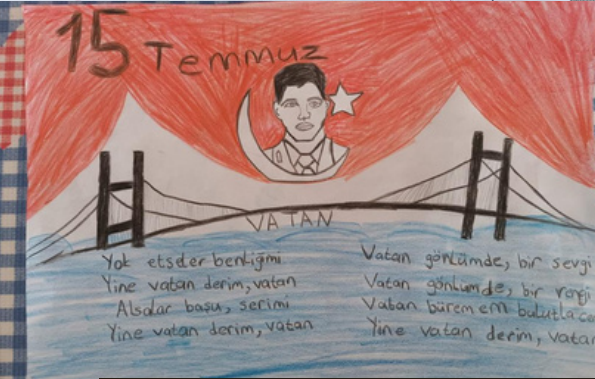 15 Temmuz
VATAN
Yok etseler benliğimi
Yine vatan derim, vatan
Alsalar başu, serimi
Yine vatan derim, vatan
Vatan gönlümde, bir sevgi
Vatan gönlümde, bir rengi
Vatan bürem em bulutla
Yine vatan derim, vatan